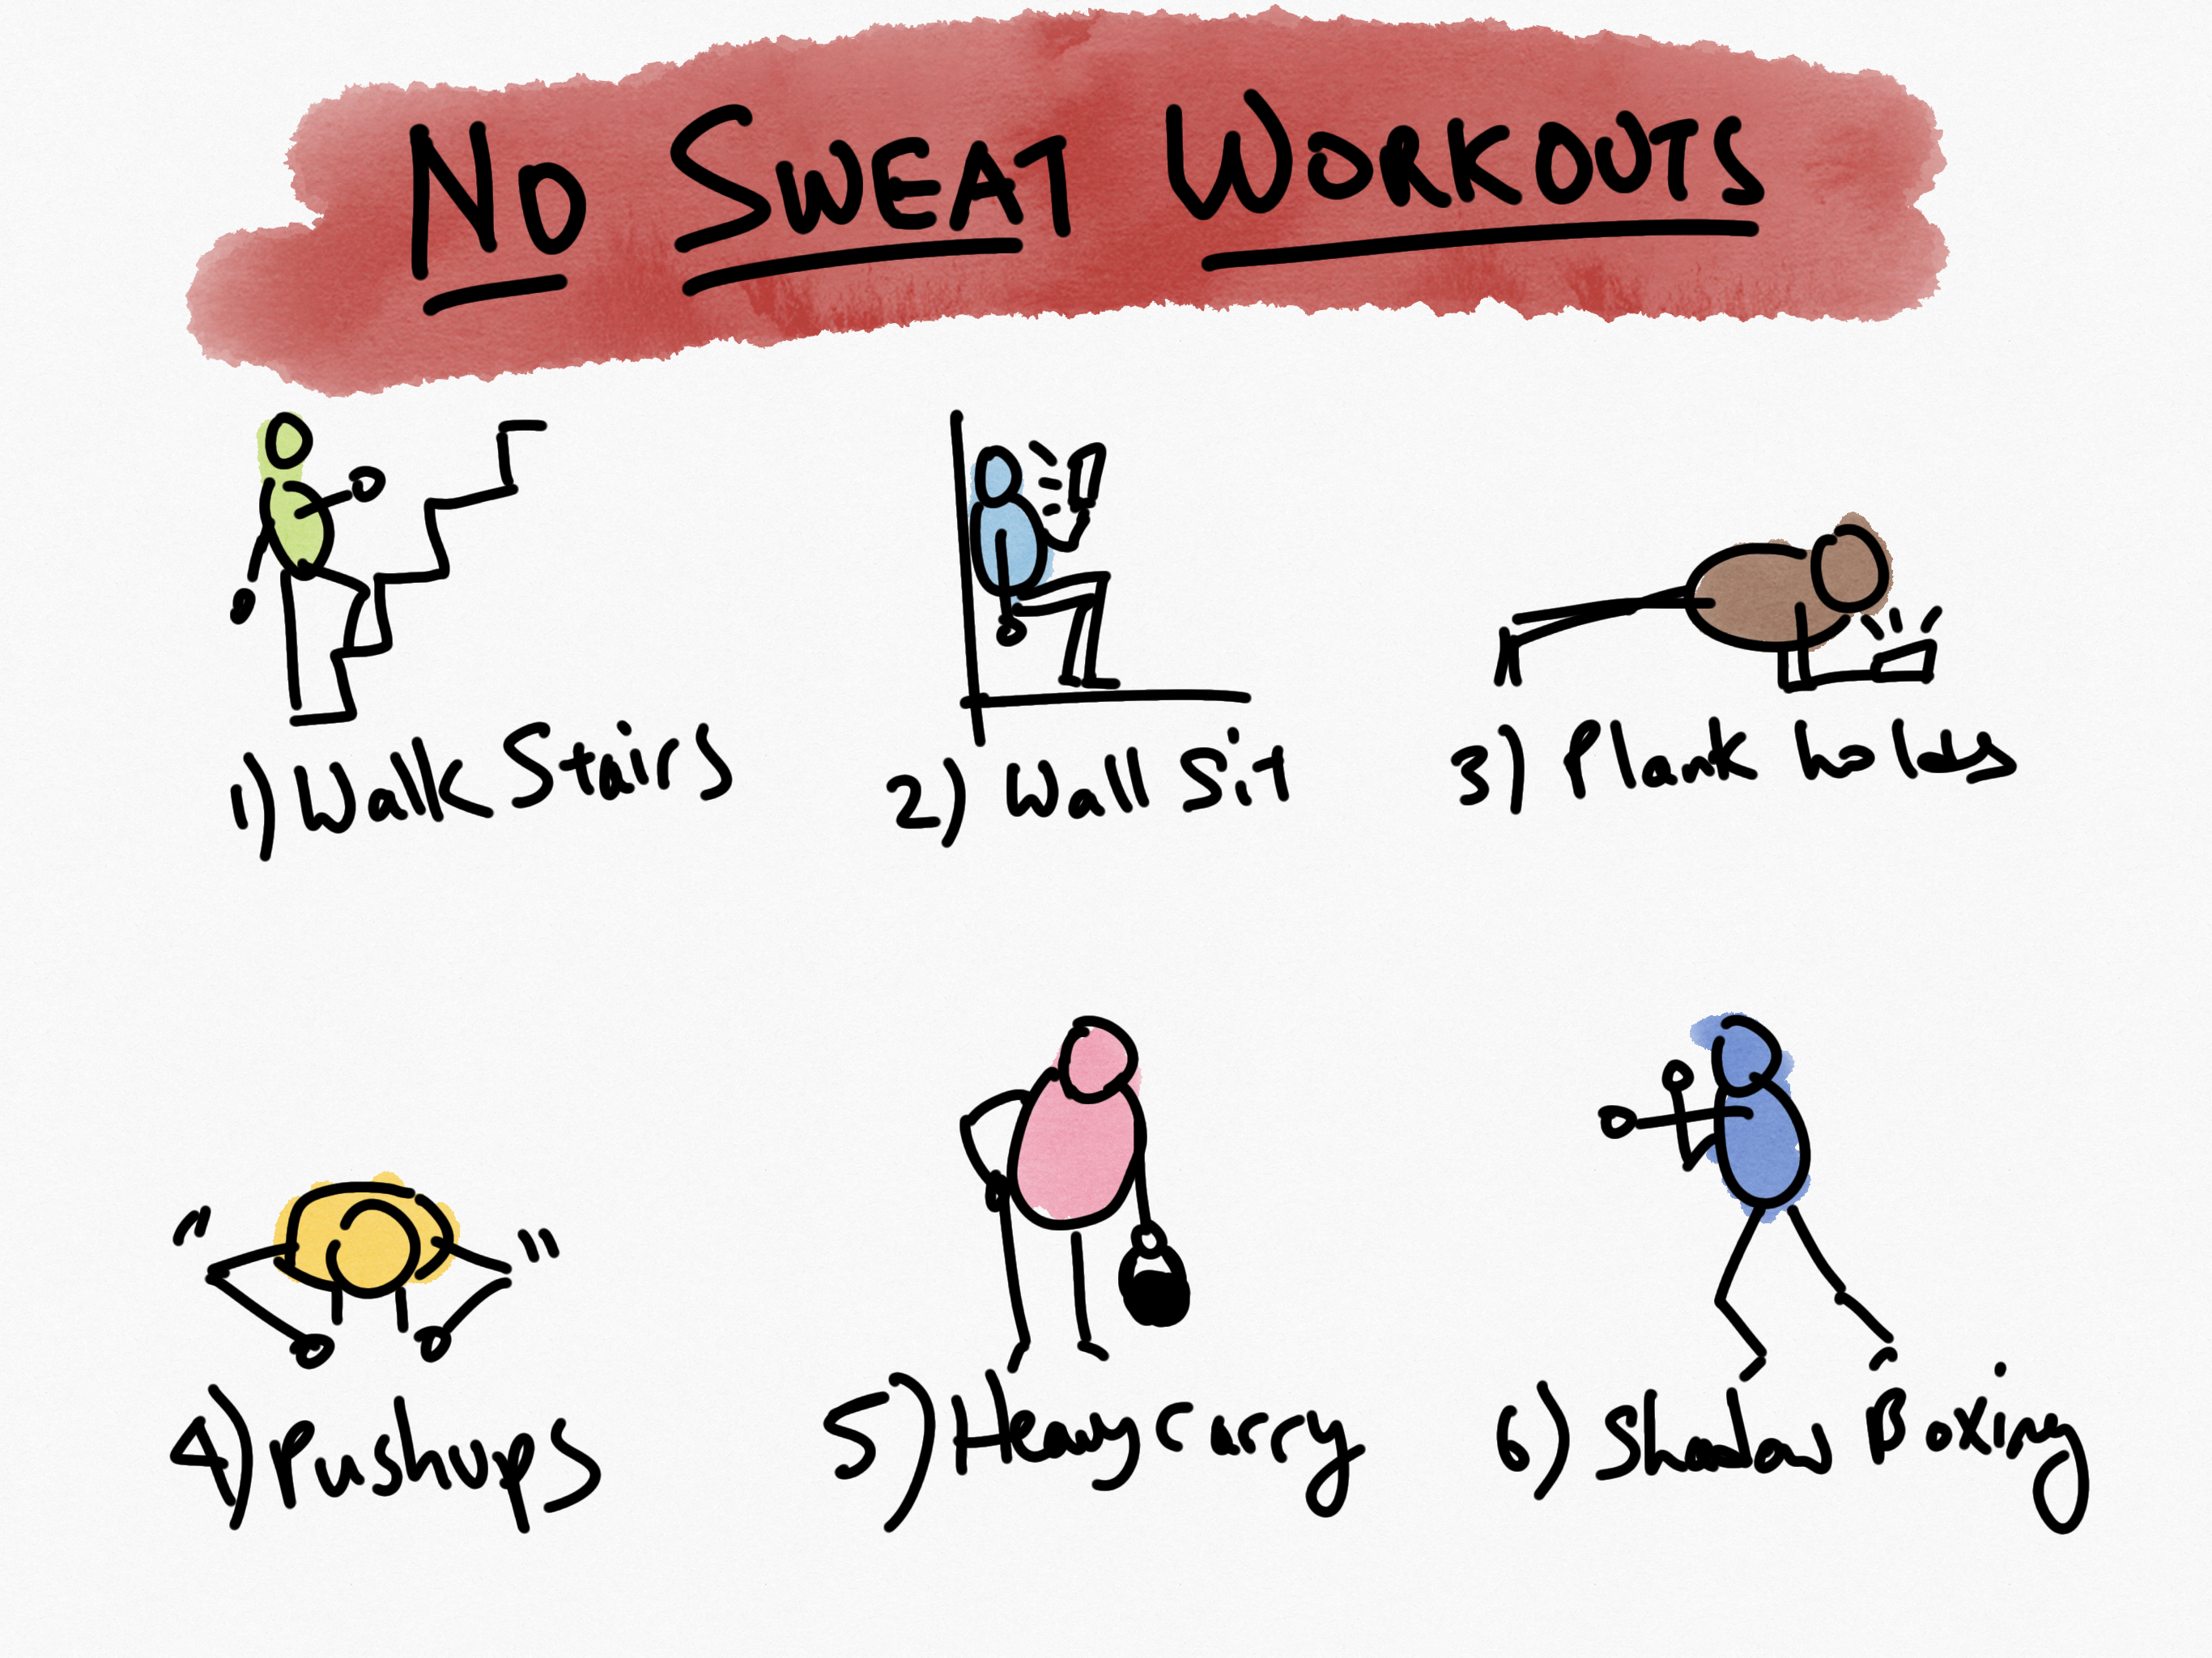 NO SWEAT WORKOUTS
1) Walk Stairs
2) Wall Sit
3) Plank holds
4) Pushups
5) Heavy Carry
6) Shadow Boxing